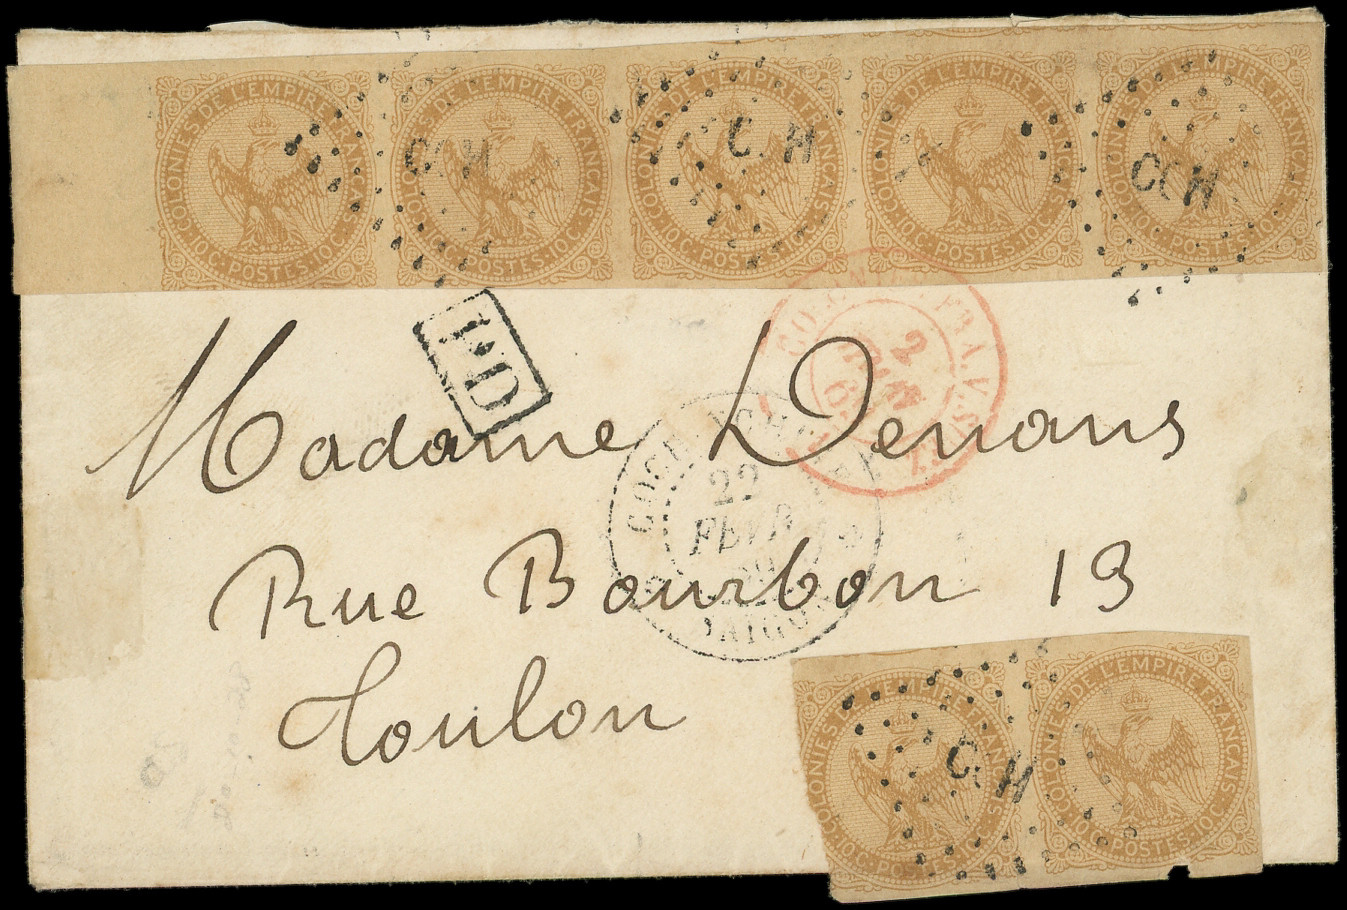 COLONIES DE L'EMPIRE FRANÇAIS 10C · POSTES · 10C
COLONIES DE L'EMPIRE FRANÇAIS 10C · POSTES · 10C
COLONIES DE L'EMPIRE FRANÇAIS 10C · POSTES · 10C
COLONIES DE L'EMPIRE FRANÇAIS 10C · POSTES · 10C
COLONIES DE L'EMPIRE FRANÇAIS 10C · POSTES · 10C
CCH
CCH
CCH
PD
2
Madame Denans
22
FEVR
SAIGON
Rue Bourbon 13
Toulon
COLONIES DE L'EMPIRE FRANÇAIS 10C · POSTES · 10C
COLONIES DE L'EMPIRE FRANÇAIS 10C · POSTES · 10C
CCH